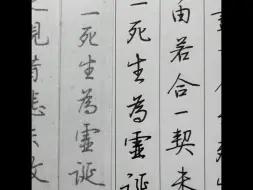 由若合一契未
一死生為虛誕
一死生為虛誕
視昔悲夫故